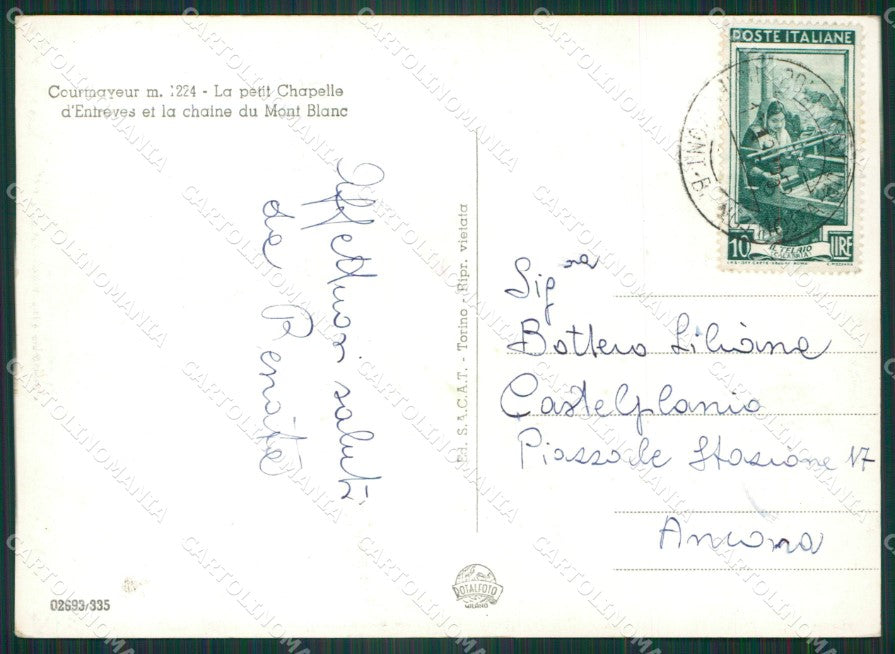 Courmayeur m. 1224 - La petit Chapelle
d'Entrèves et la chaine du Mont Blanc
Affettuosi saluti
da Renata
Ed. S.A.C.A.T. - Torino - Ripr. vietata
POSTE ITALIANE
10 LIRE
IL TELAIO
Sig.na
Bottero Liliana
Castelplanio
Piazzale Stazione 17
Ancona
ROTALFOTO
MILANO
02693/335
CARTOLINOMANIA